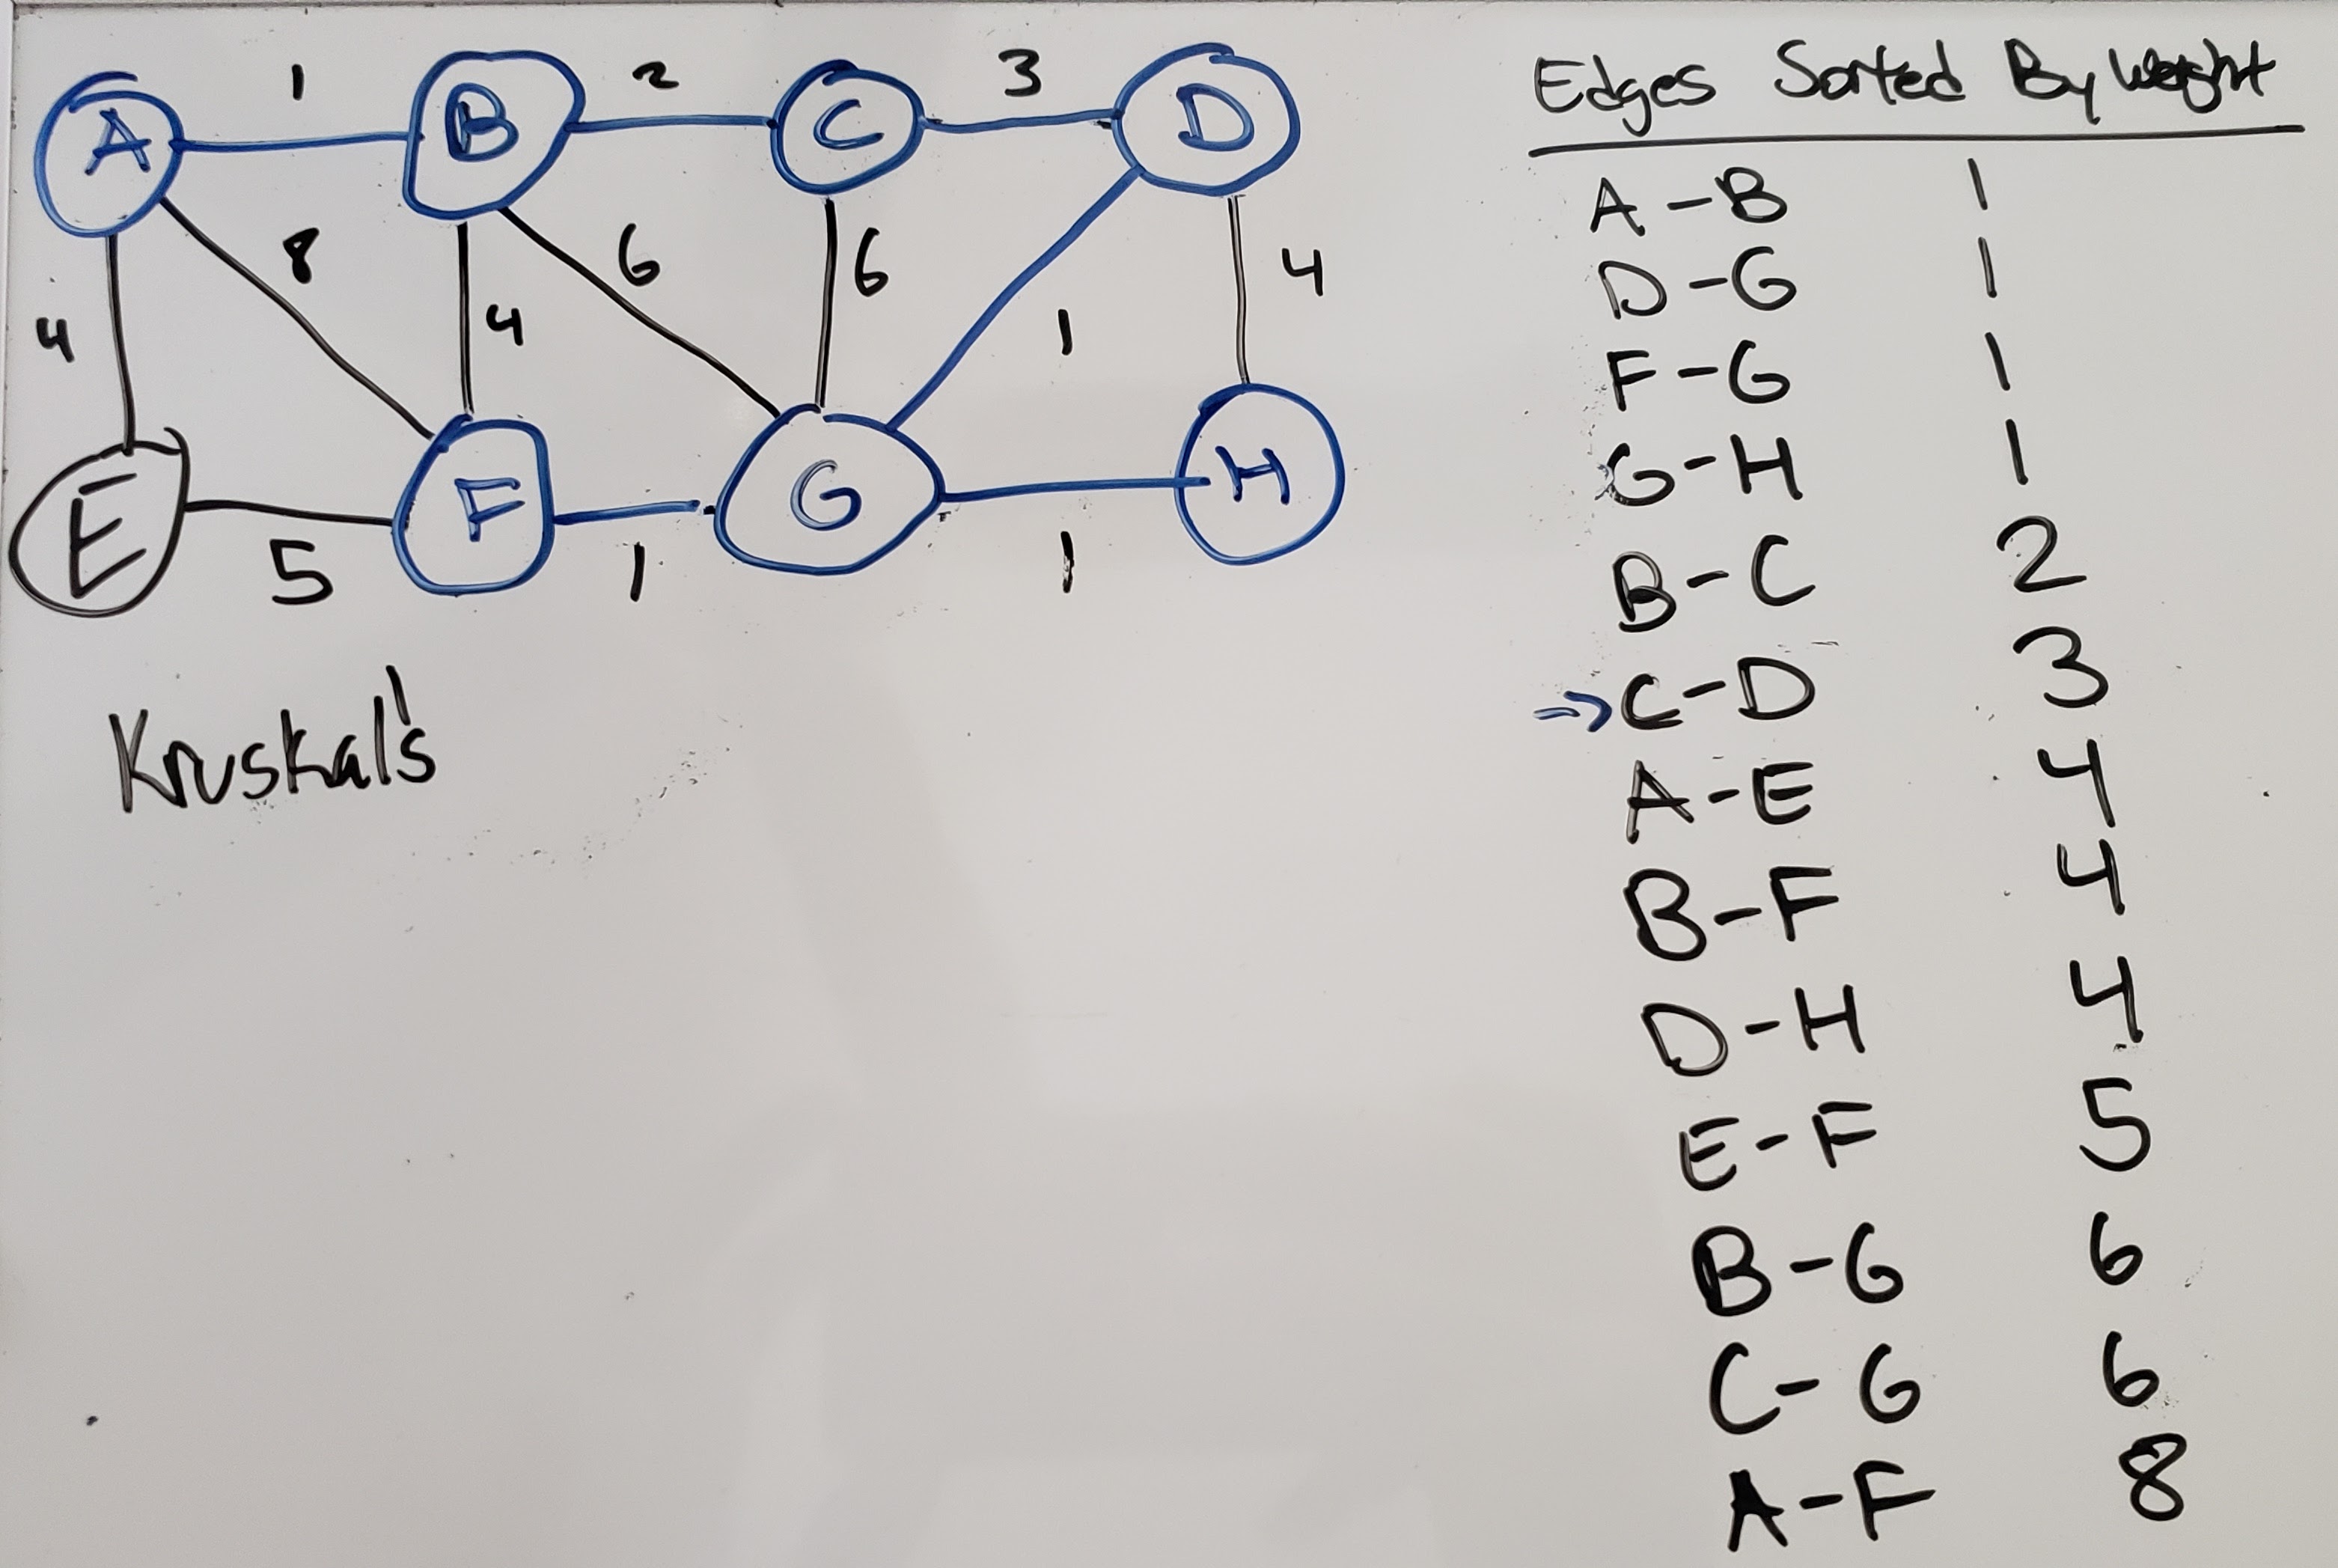 1 2 3
A B C D
8 6 6 4
4 4 1
E F G H
5 1 1
Kruskal's
Edges Sorted By Weight
A-B 1
D-G 1
F-G 1
G-H 1
B-C 2
=> C-D 3
A-E 4
B-F 4
D-H 4
E-F 5
B-G 6
C-G 6
A-F 8